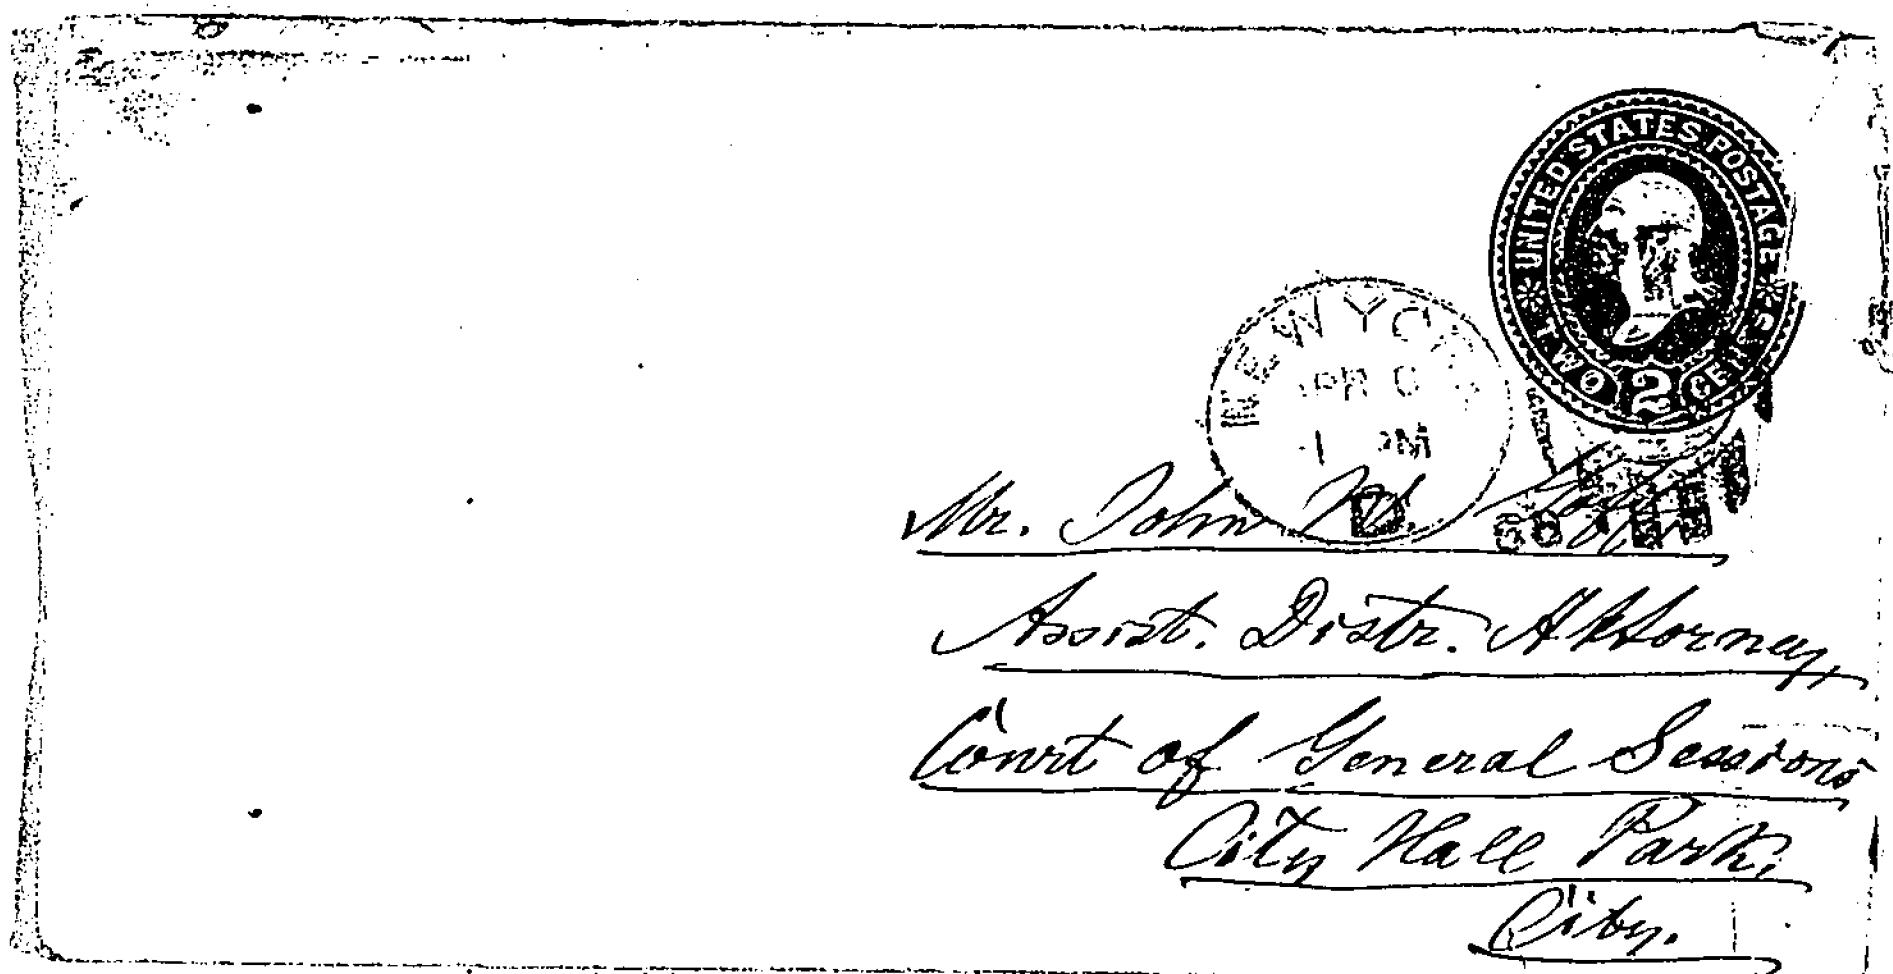 UNITED STATES POSTAGE
TWO 2 CENTS
NEW YORK
1 PM
D
Mr. John
Assist. Distr. Attorney,
Court of General Sessions
City Hall Park,
City.